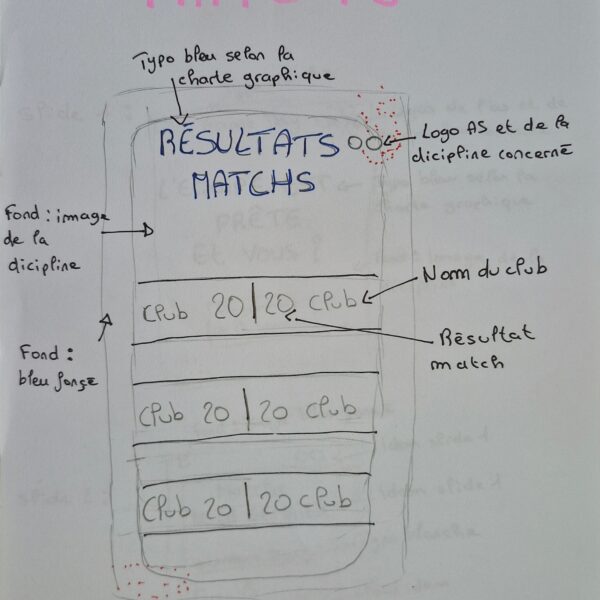 Typo bleu selon la
charte graphique
RÉSULTATS
MATCHS
Logo AS et de la
dicipline concerné
Fond : image
de la
dicipline
Nom du club
club 20 | 20 club
Résultat
match
Fond :
bleu fonçé
club 20 | 20 club
club 20 | 20 club